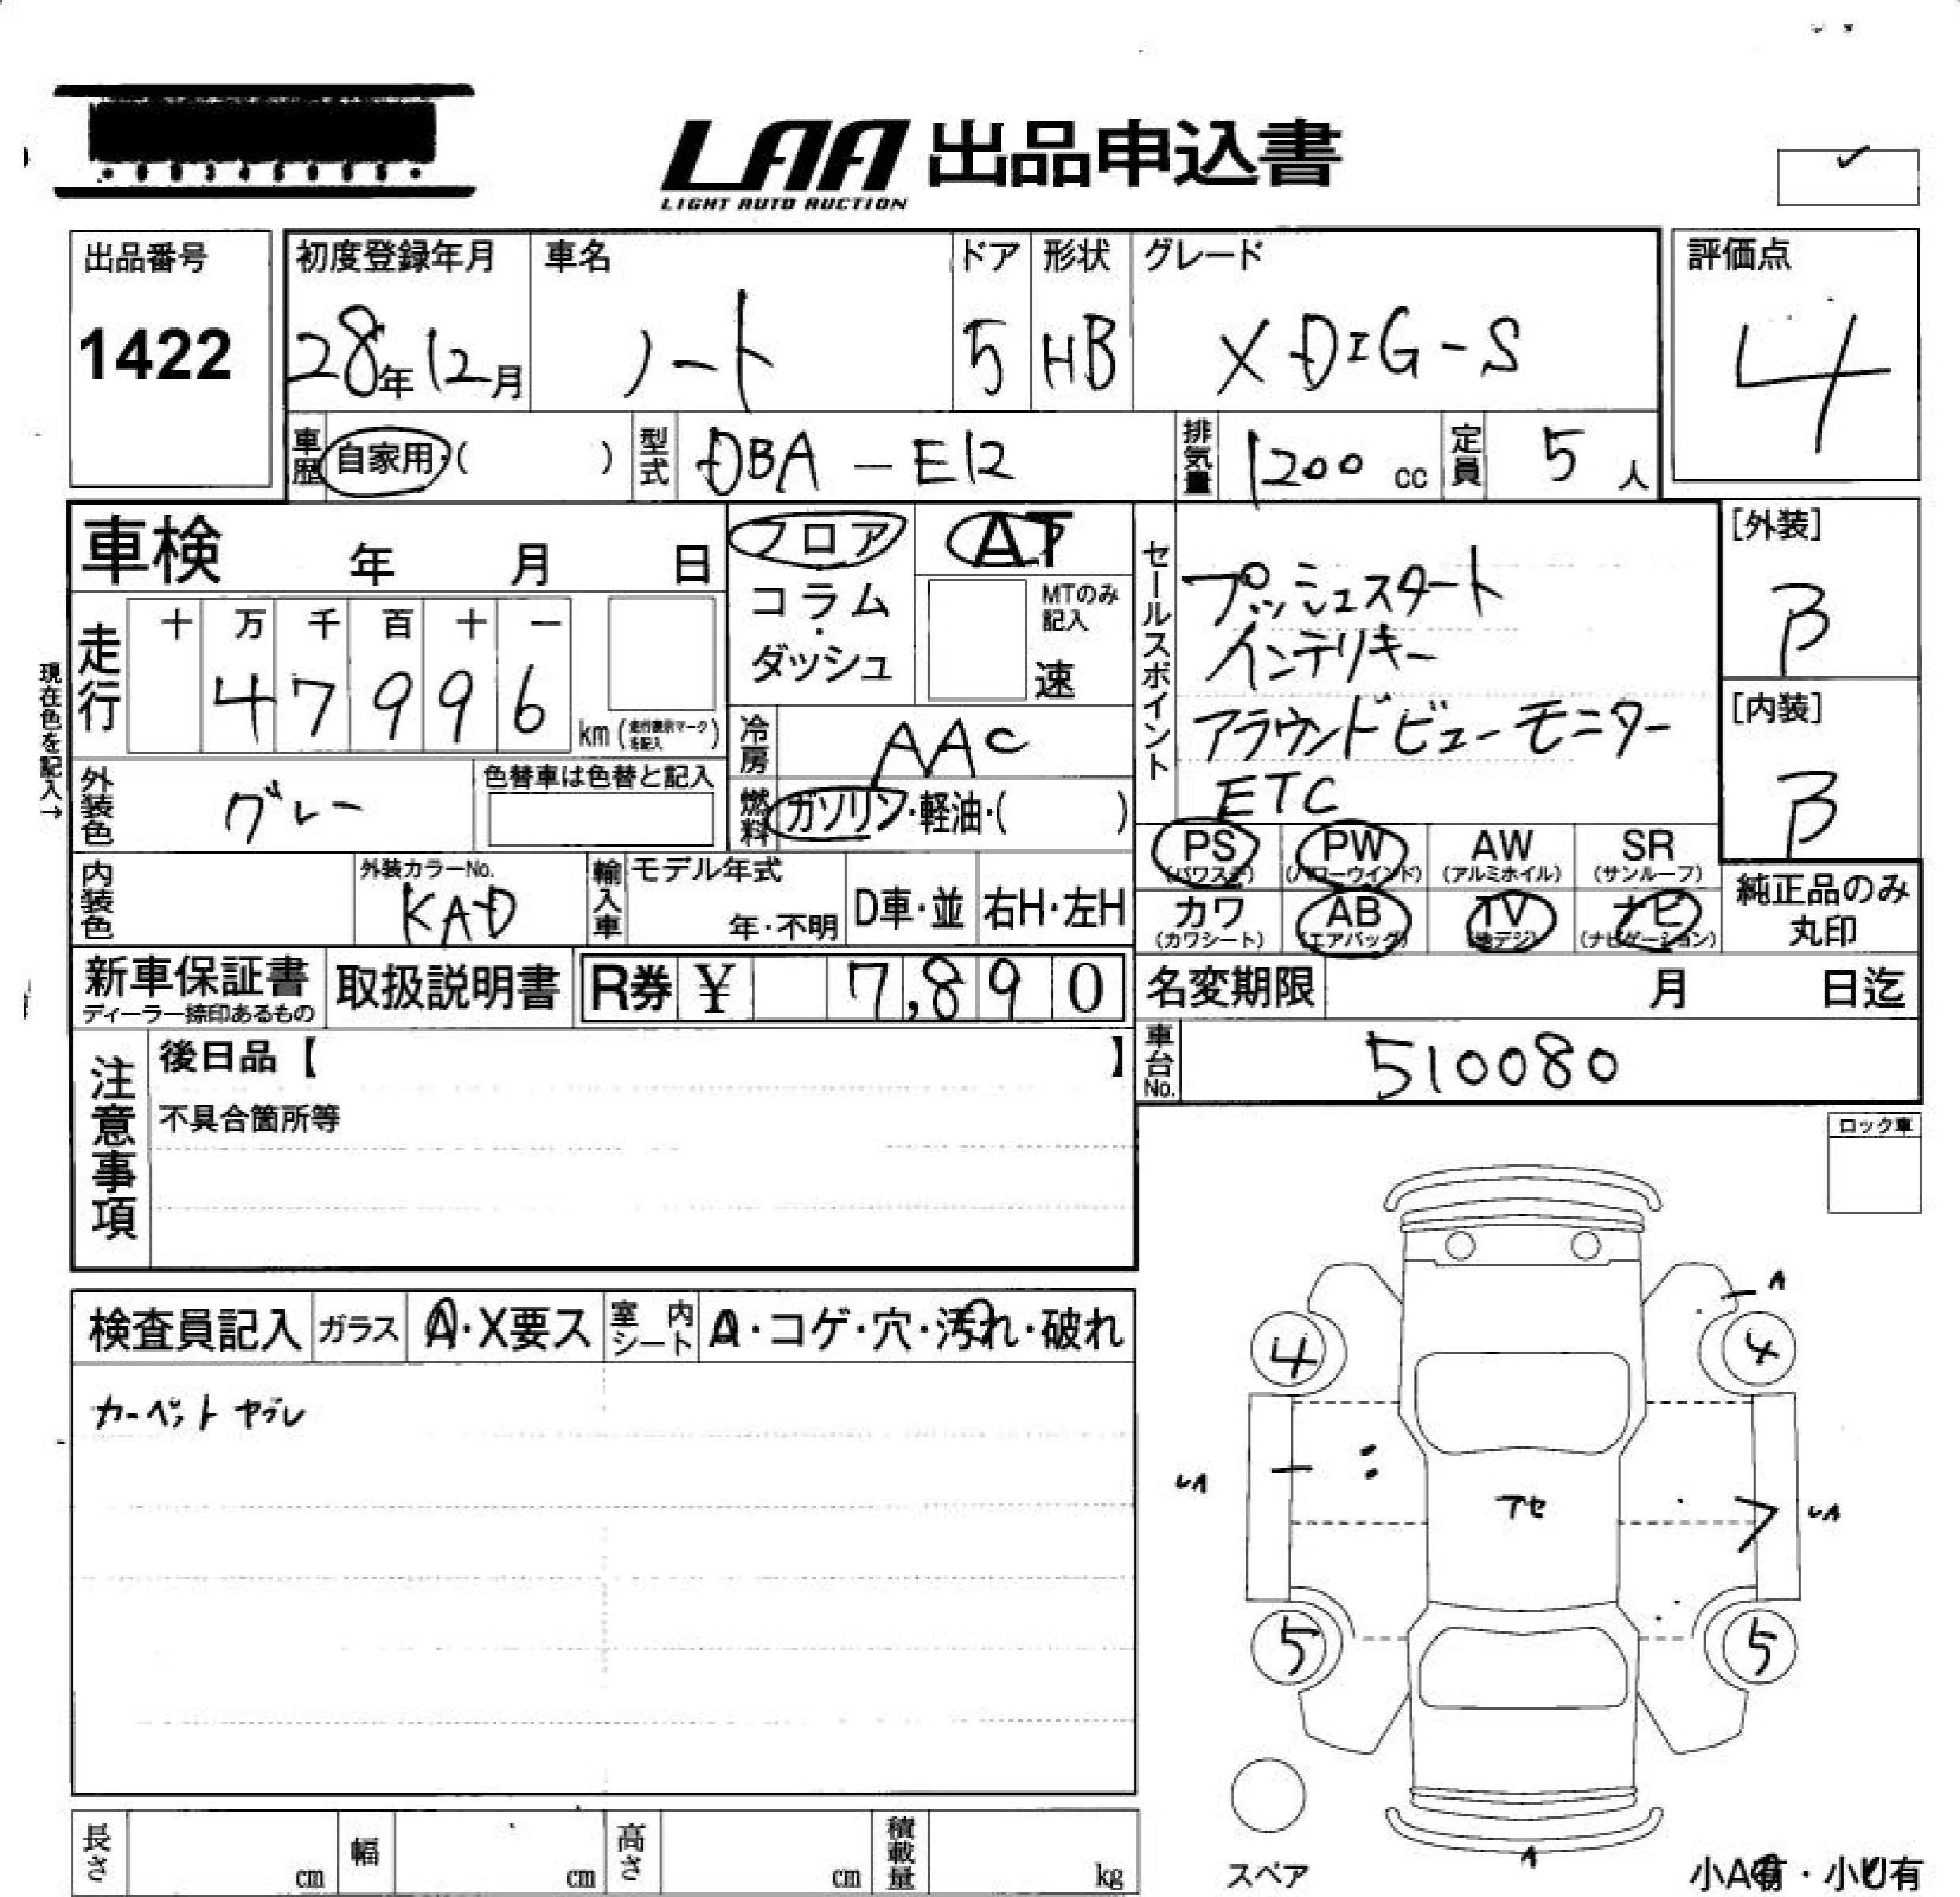 LAA 出品申込書
LIGHT AUTO AUCTION
出品番号 初度登録年月 車名 ドア 形状 グレード 評価点
1422 28年12月 ノート 5 HB X DIG-S 4
車歴 自家用・( ) 型式 DBA-E12 排気量 1200 cc 定員 5 人
車検 年 月 日 フロア AT
コラム・ダッシュ MTのみ記入 速
セールスポイント
プッシュスタート
インテリキー
アラウンドビューモニター
ETC
[外装]
B
[内装]
B
現在色を記入→
走行 十 万 千 百 十 一
47996 km (走行表示マークを記入)
冷房 AAC
外装色 グレー 色替車は色替と記入
燃料 ガソリン・軽油・( )
PS PW AW SR
(パワステ) (パワーウインド) (アルミホイル) (サンルーフ)
カワ AB TV ナビ
(カワシート) (エアバッグ) (地デジ) (ナビゲーション)
純正品のみ
丸印
内装色 外装カラーNo. KAD 輸入車 モデル年式 年・不明 D車・並 右H・左H
新車保証書 取扱説明書 R券 ¥ 7,890 名変期限 月 日迄
ディーラー捺印あるもの
車台No. 510080
注意事項
後日品【 】
不具合箇所等
ロック車
検査員記入 ガラス A・X要ス 室内シート A・コゲ・穴・汚れ・破れ
カーペットヤブレ
A
4 4
アセ
5 5
A
スペア
小A有・小U有
長さ cm 幅 cm 高さ cm 積載量 kg